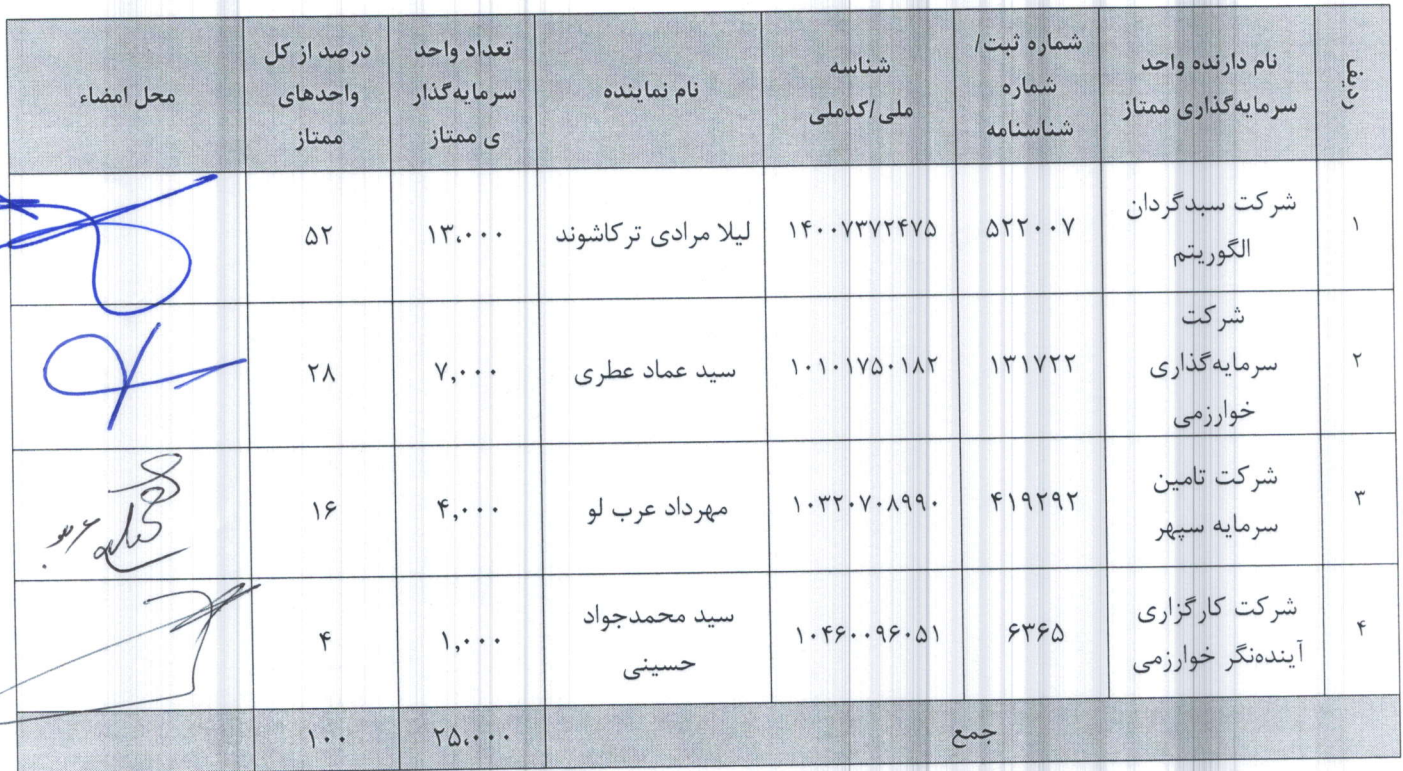 ردیف
نام دارنده واحد
سرمایه‌گذاری ممتاز
شماره ثبت/
شماره
شناسنامه
شناسه
ملی/کدملی
نام نماینده
تعداد واحد
سرمایه‌گذار
ی ممتاز
درصد از کل
واحدهای
ممتاز
محل امضاء
۱
شرکت سبدگردان
الگوریتم
۵۲۲۰۰۷
۱۴۰۰۷۳۷۲۴۷۵
لیلا مرادی ترکاشوند
۱۳،۰۰۰
۵۲
۲
شرکت
سرمایه‌گذاری
خوارزمی
۱۳۱۷۲۲
۱۰۱۰۱۷۵۰۱۸۲
سید عماد عطری
۷,۰۰۰
۲۸
۳
شرکت تامین
سرمایه سپهر
۴۱۹۲۹۲
۱۰۳۲۰۷۰۸۹۹۰
مهرداد عرب لو
۴,۰۰۰
۱۶
۴
شرکت کارگزاری
آینده‌نگر خوارزمی
۶۳۶۵
۱۰۴۶۰۰۹۶۰۵۱
سید محمدجواد
حسینی
۱,۰۰۰
۴
جمع
۲۵،۰۰۰
۱۰۰